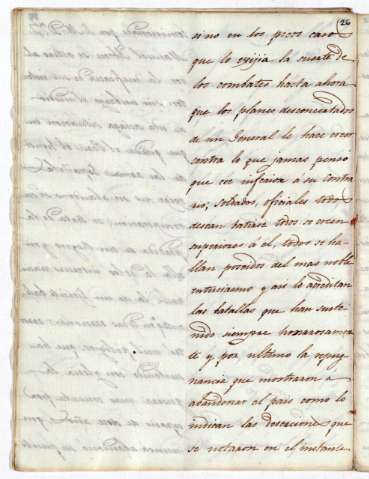 26
sino en los pocos casos
que lo exijia la suerte de
los combates hasta ahora
que los planes desconcertados
de un General le hace creer
contra lo que jamas penso
que es inferior á su contra
rio; soldados, oficiales todos
desean batirse todos se creen
superiores á el, todos se ha
llan poseidos del mas noble
entusiasmo y asi lo acreditan
las batallas que han soste
nido siempre honrrosamen
te y por ultimo la repug
nancia que mostraron á
abandonar el pais como lo
indican las deserciones que
se notaron en el instante